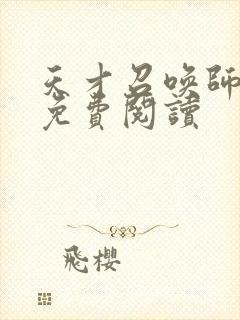 天才召喚師
免費閱讀
飛櫻